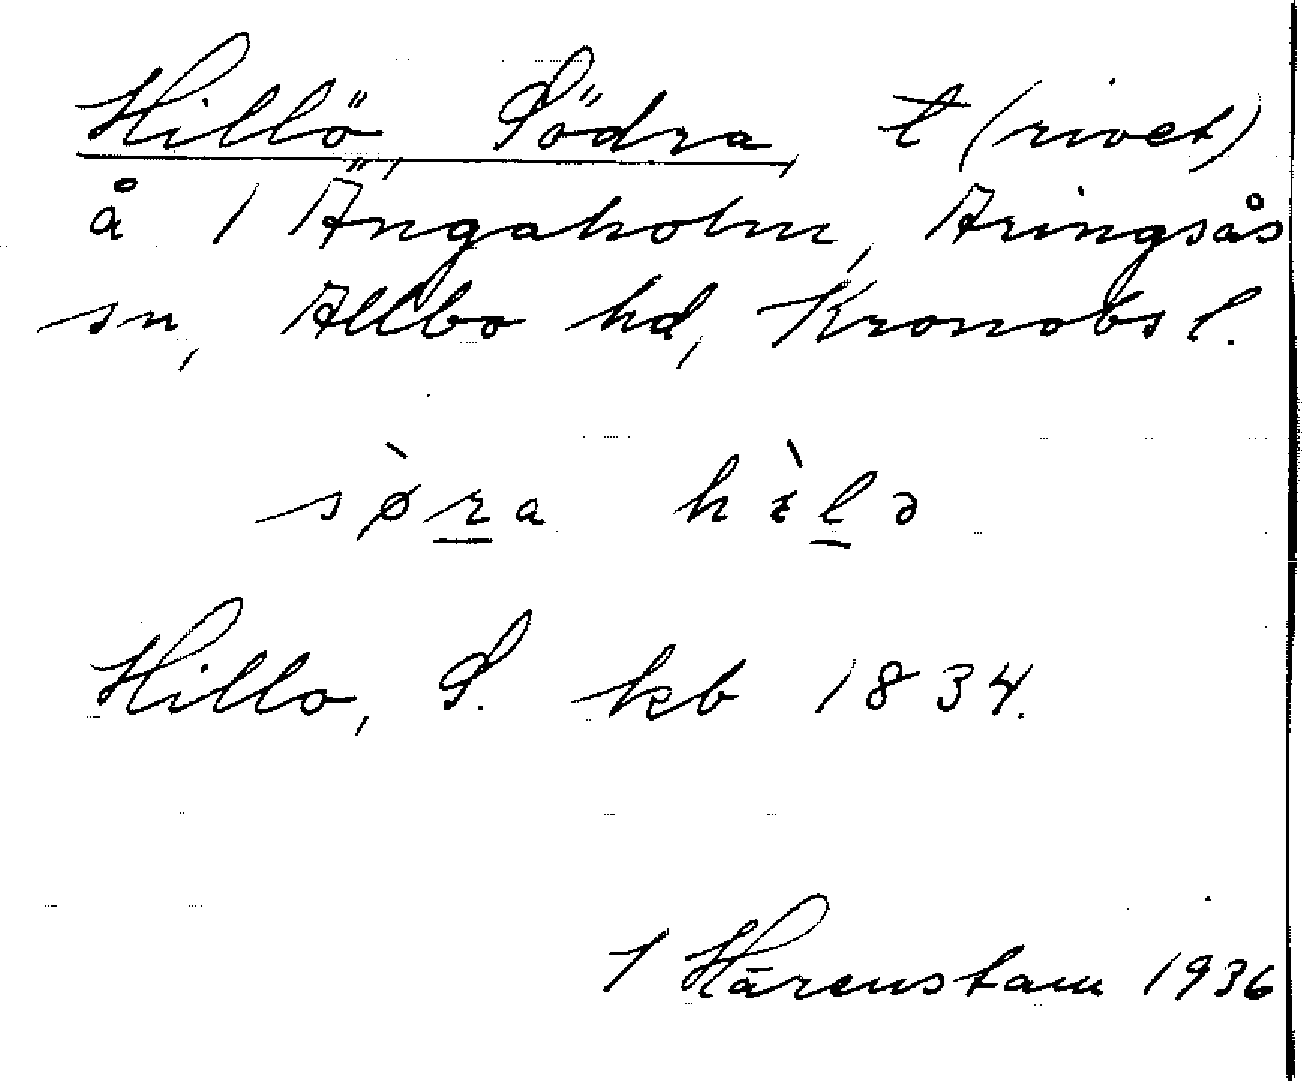 Hillö Södra, t (rivet)
å 1 Ängaholm, Aringsås
sn, Allbo hd, Kronobs l.
sø̀ra hìlə
Hillo, S. kb 1834.
1 Hårenstam 1936